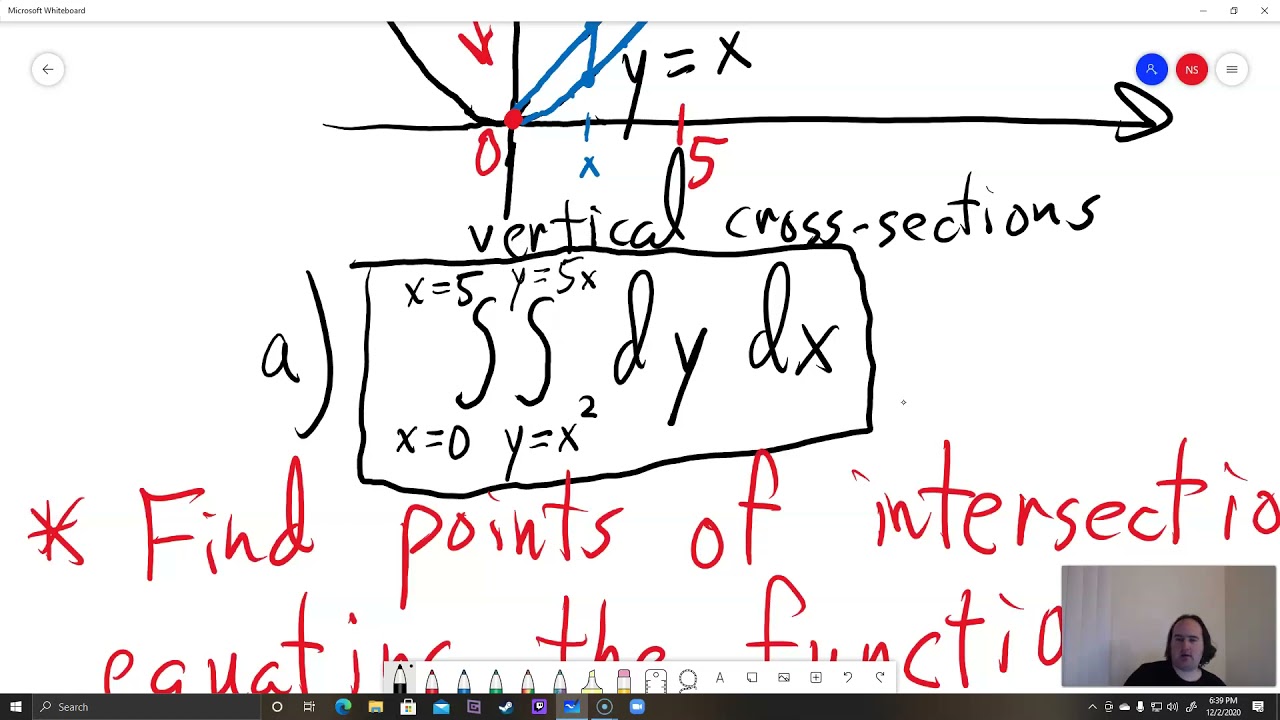 Microsoft Whiteboard
y = x
NS
0
x
5
vertical cross-sections
x=5 y=5x
a) ∫∫ dy dx
x=0 y=x²
* Find points of intersectio
equating the functio
A
Search
6:39 PM
12/2/2020